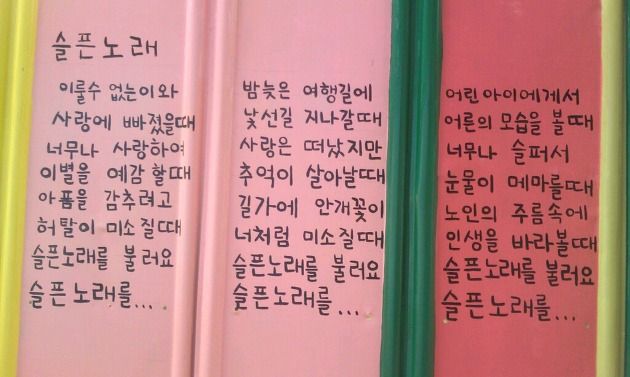 슬픈노래
이룰수 없는이와
사랑에 빠졌을때
너무나 사랑하여
이별을 예감할때
아픔을 감추려고
허탈이 미소질때
슬픈노래를 불러요
슬픈노래를...
밤늦은 여행길에
낯선길 지나갈때
사랑은 떠났지만
추억이 살아날때
길가에 안개꽃이
너처럼 미소질때
슬픈노래를 불러요
슬픈노래를...
어린아이에게서
어른의 모습을 볼때
너무나 슬퍼서
눈물이 메마를때
노인의 주름속에
인생을 바라볼때
슬픈노래를 불러요
슬픈노래를...